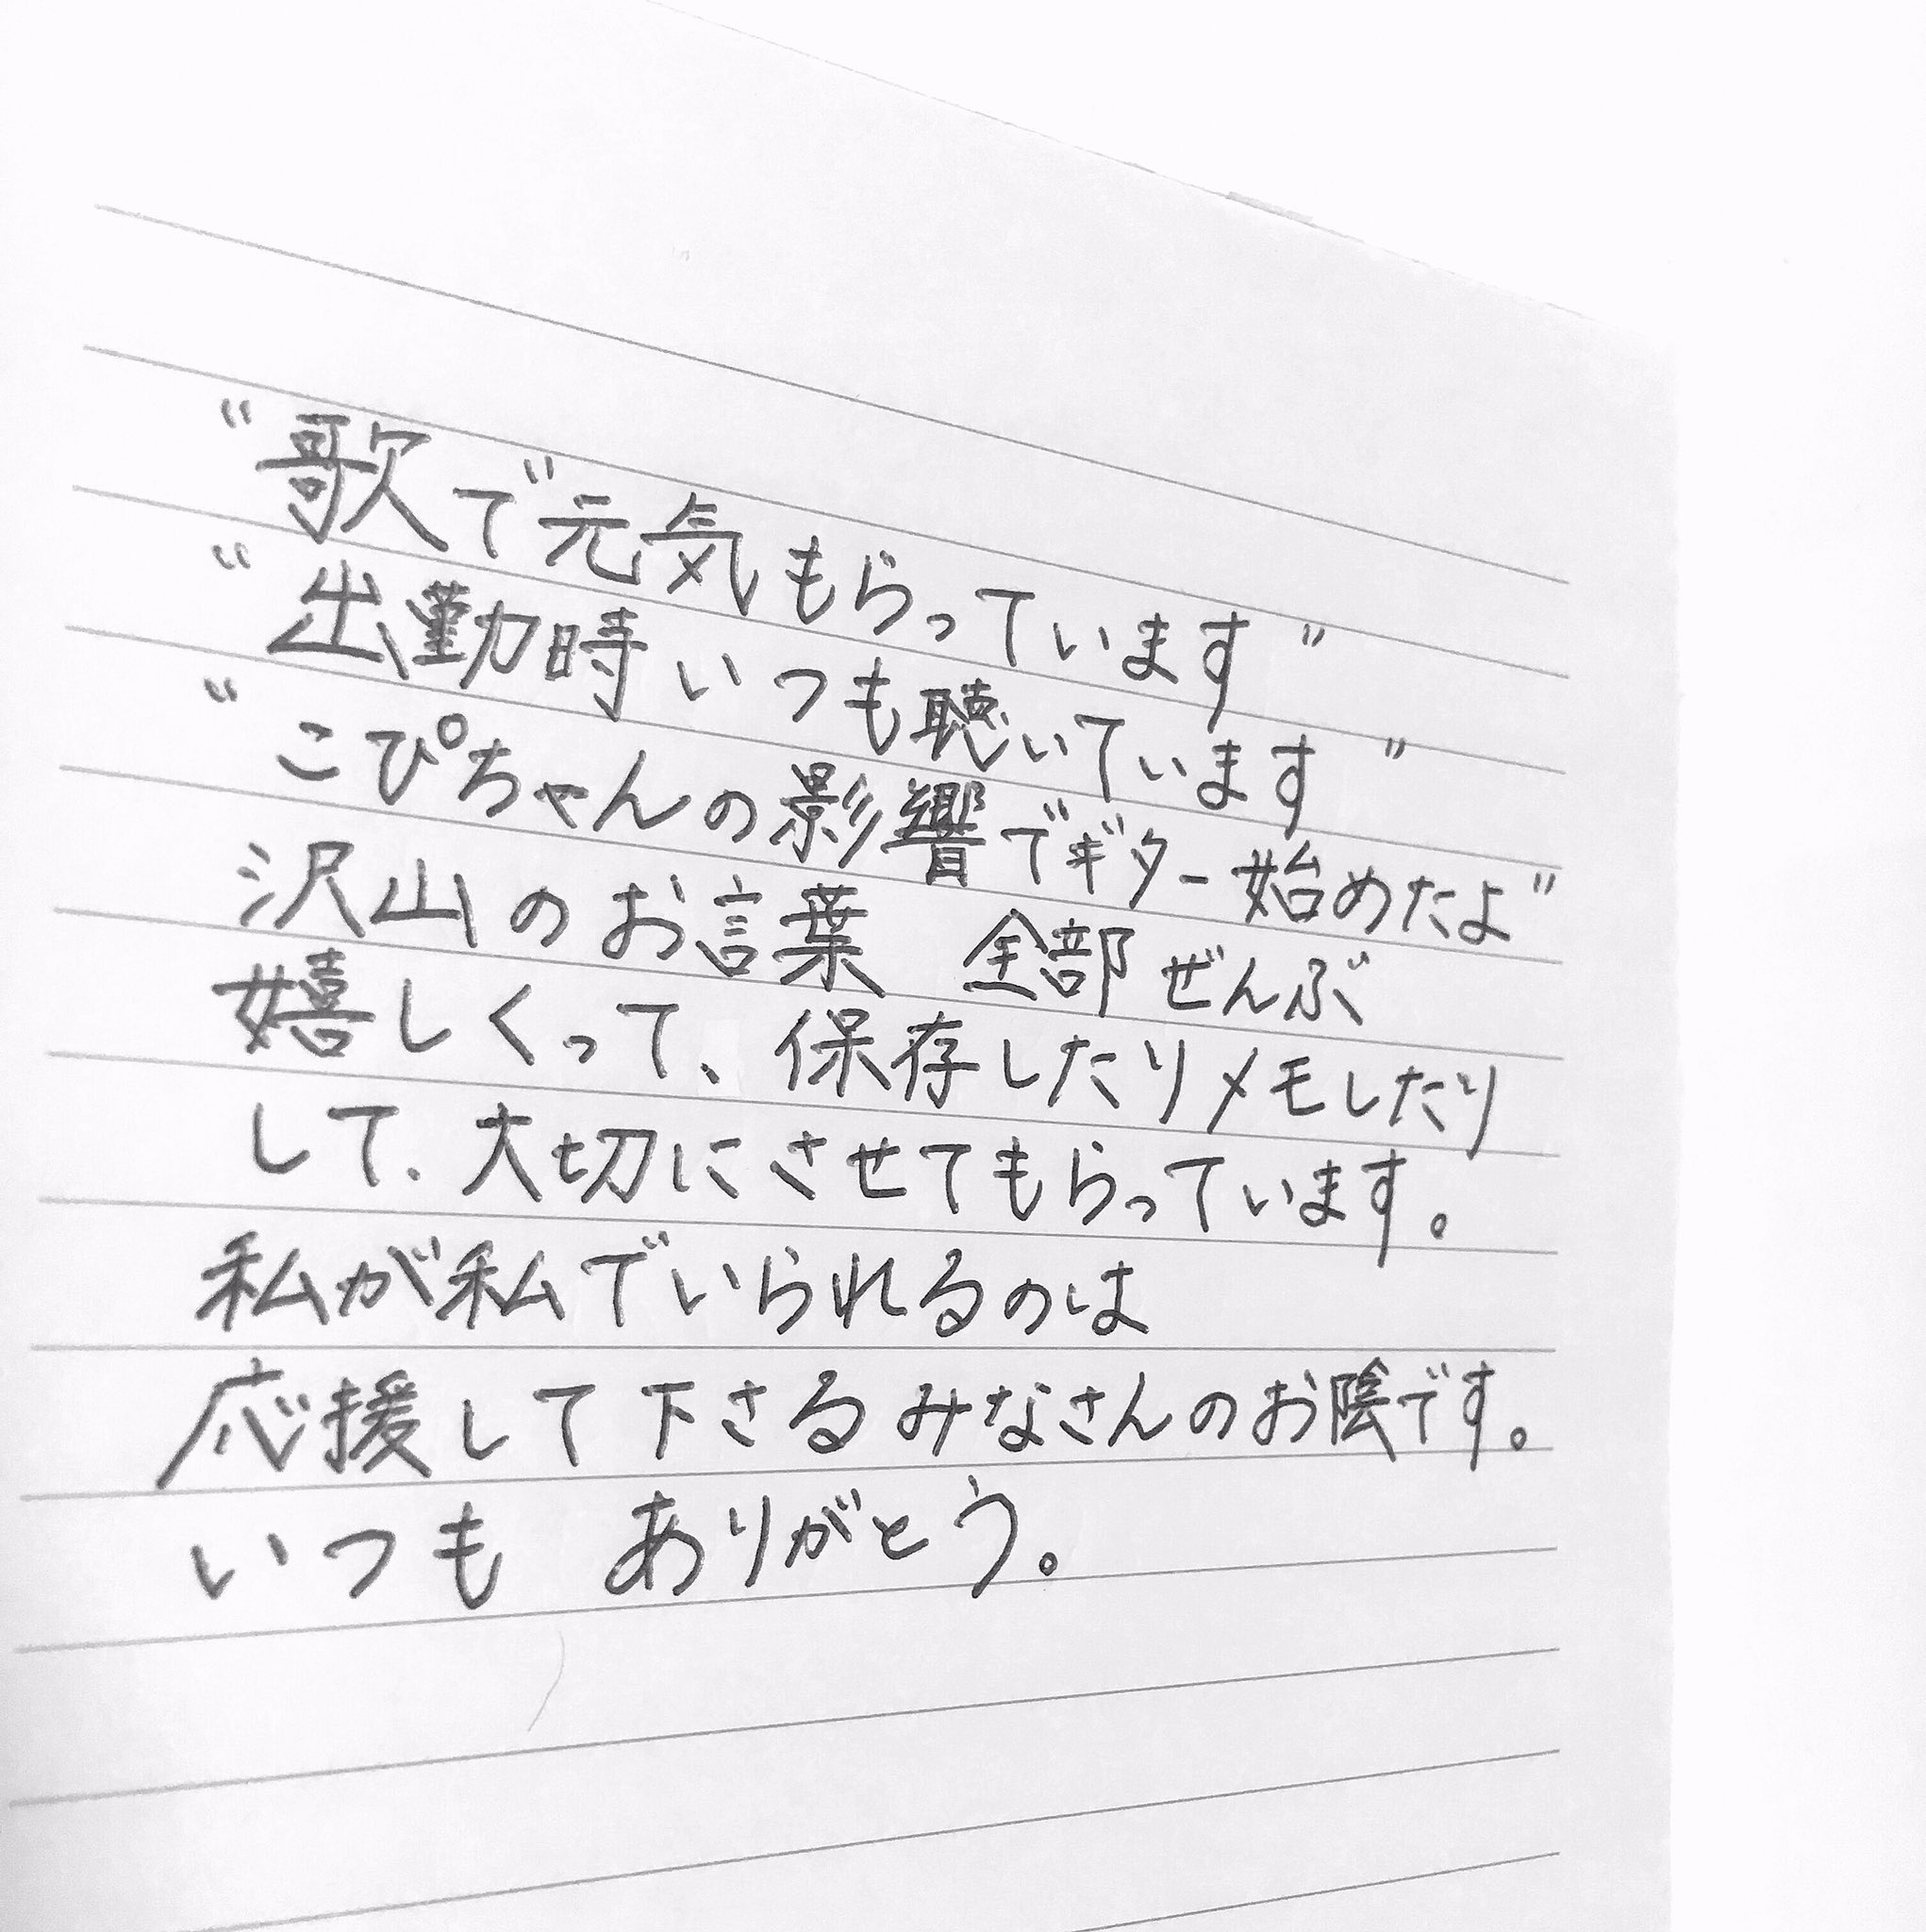 “歌で元気もらっています”
“出勤時いつも聴いています”
“こぴちゃんの影響でギター始めたよ”
沢山のお言葉　全部ぜんぶ
嬉しくって、保存したりメモしたり
して、大切にさせてもらっています。
私が私でいられるのは
応援して下さるみなさんのお陰です。
いつも　ありがとう。